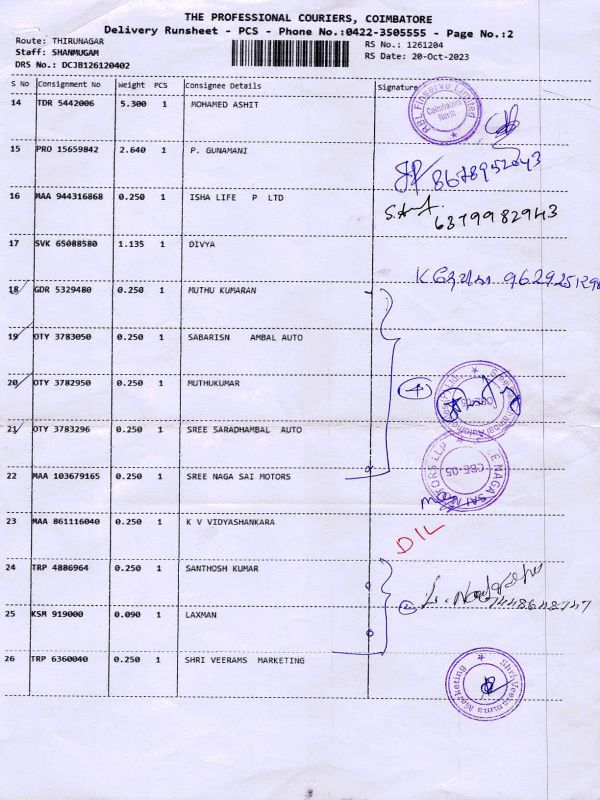 THE PROFESSIONAL COURIERS, COIMBATORE
Delivery Runsheet - PCS - Phone No.:0422-3505555 - Page No.:2
Route: THIRUNAGAR
Staff: SHANMUGAM
DRS No.: DCJB126120402
RS No.: 1261204
RS Date: 20-Oct-2023
S No Consignment No Weight PCS Consignee Details Signature
14 TDR 5442006 5.300 1 MOHAMED ASHIT
RBL Finserve Limited Coimbatore North
15 PRO 15659842 2.640 1 P. GUNAMANI
16 MAA 944316868 0.250 1 ISHA LIFE P LTD
6379982943
17 SVK 65088580 1.135 1 DIVYA
18 GDR 5329480 0.250 1 MUTHU KUMARAN
19 OTY 3783050 0.250 1 SABARISN AMBAL AUTO
20 OTY 3782950 0.250 1 MUTHUKUMAR
4
21 OTY 3783296 0.250 1 SREE SARADHAMBAL AUTO
22 MAA 103679165 0.250 1 SREE NAGA SAI MOTORS
CBE-05
23 MAA 861116040 0.250 1 K V VIDYASHANKARA
D/L
24 TRP 4886964 0.250 1 SANTHOSH KUMAR
7448648747
25 KSM 919000 0.090 1 LAXMAN
2
26 TRP 6360040 0.250 1 SHRI VEERAMS MARKETING
Shri Veeramma Marketing